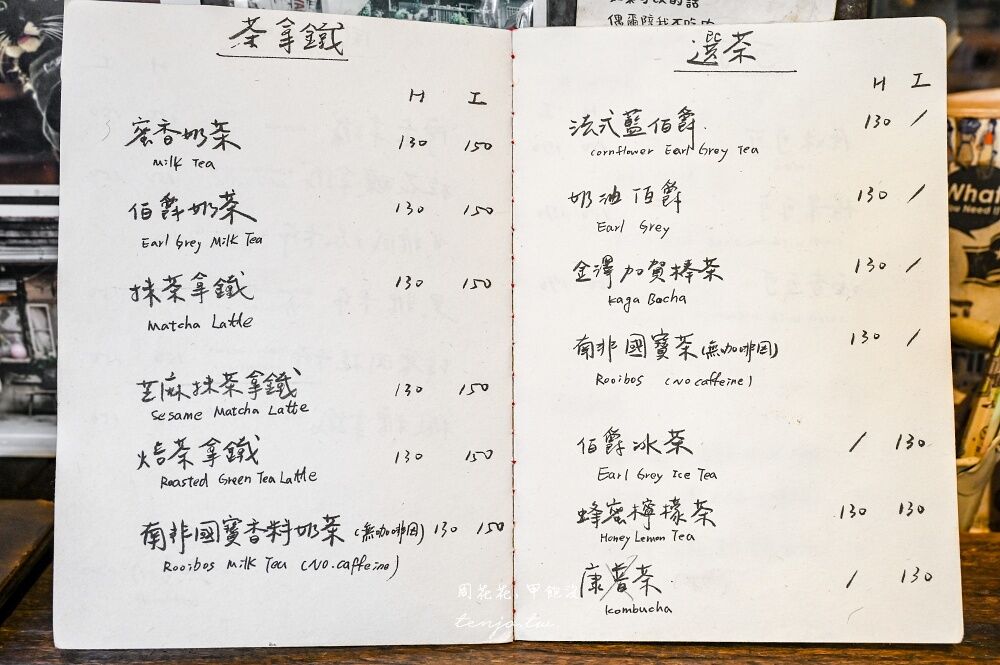 偶爾陪我不吃吃
茶拿鐵
H I
蜜香奶茶 130 150
Milk Tea
伯爵奶茶 130 150
Earl Grey Milk Tea
抹茶拿鐵 130 150
Matcha Latte
芝麻抹茶拿鐵 130 150
Sesame Matcha Latte
焙茶拿鐵 130 150
Roasted Green Tea Latte
南非國寶香料奶茶(無咖啡因) 130 150
Rooibos Milk Tea (NO.caffeine)
選茶
H I
法式藍伯爵 130 /
Cornflower Earl Grey Tea
奶油伯爵 130 /
Earl Grey
金澤加賀棒茶 130 /
Kaga Bocha
南非國寶茶(無咖啡因) 130 /
Rooibos (NO caffeine)
伯爵冰茶 / 130
Earl Grey Ice Tea
蜂蜜檸檬茶 130 130
Honey Lemon Tea
康普茶 / 130
Kombucha
周花花, 甲飽沒
tenjo.tw
What
You Need